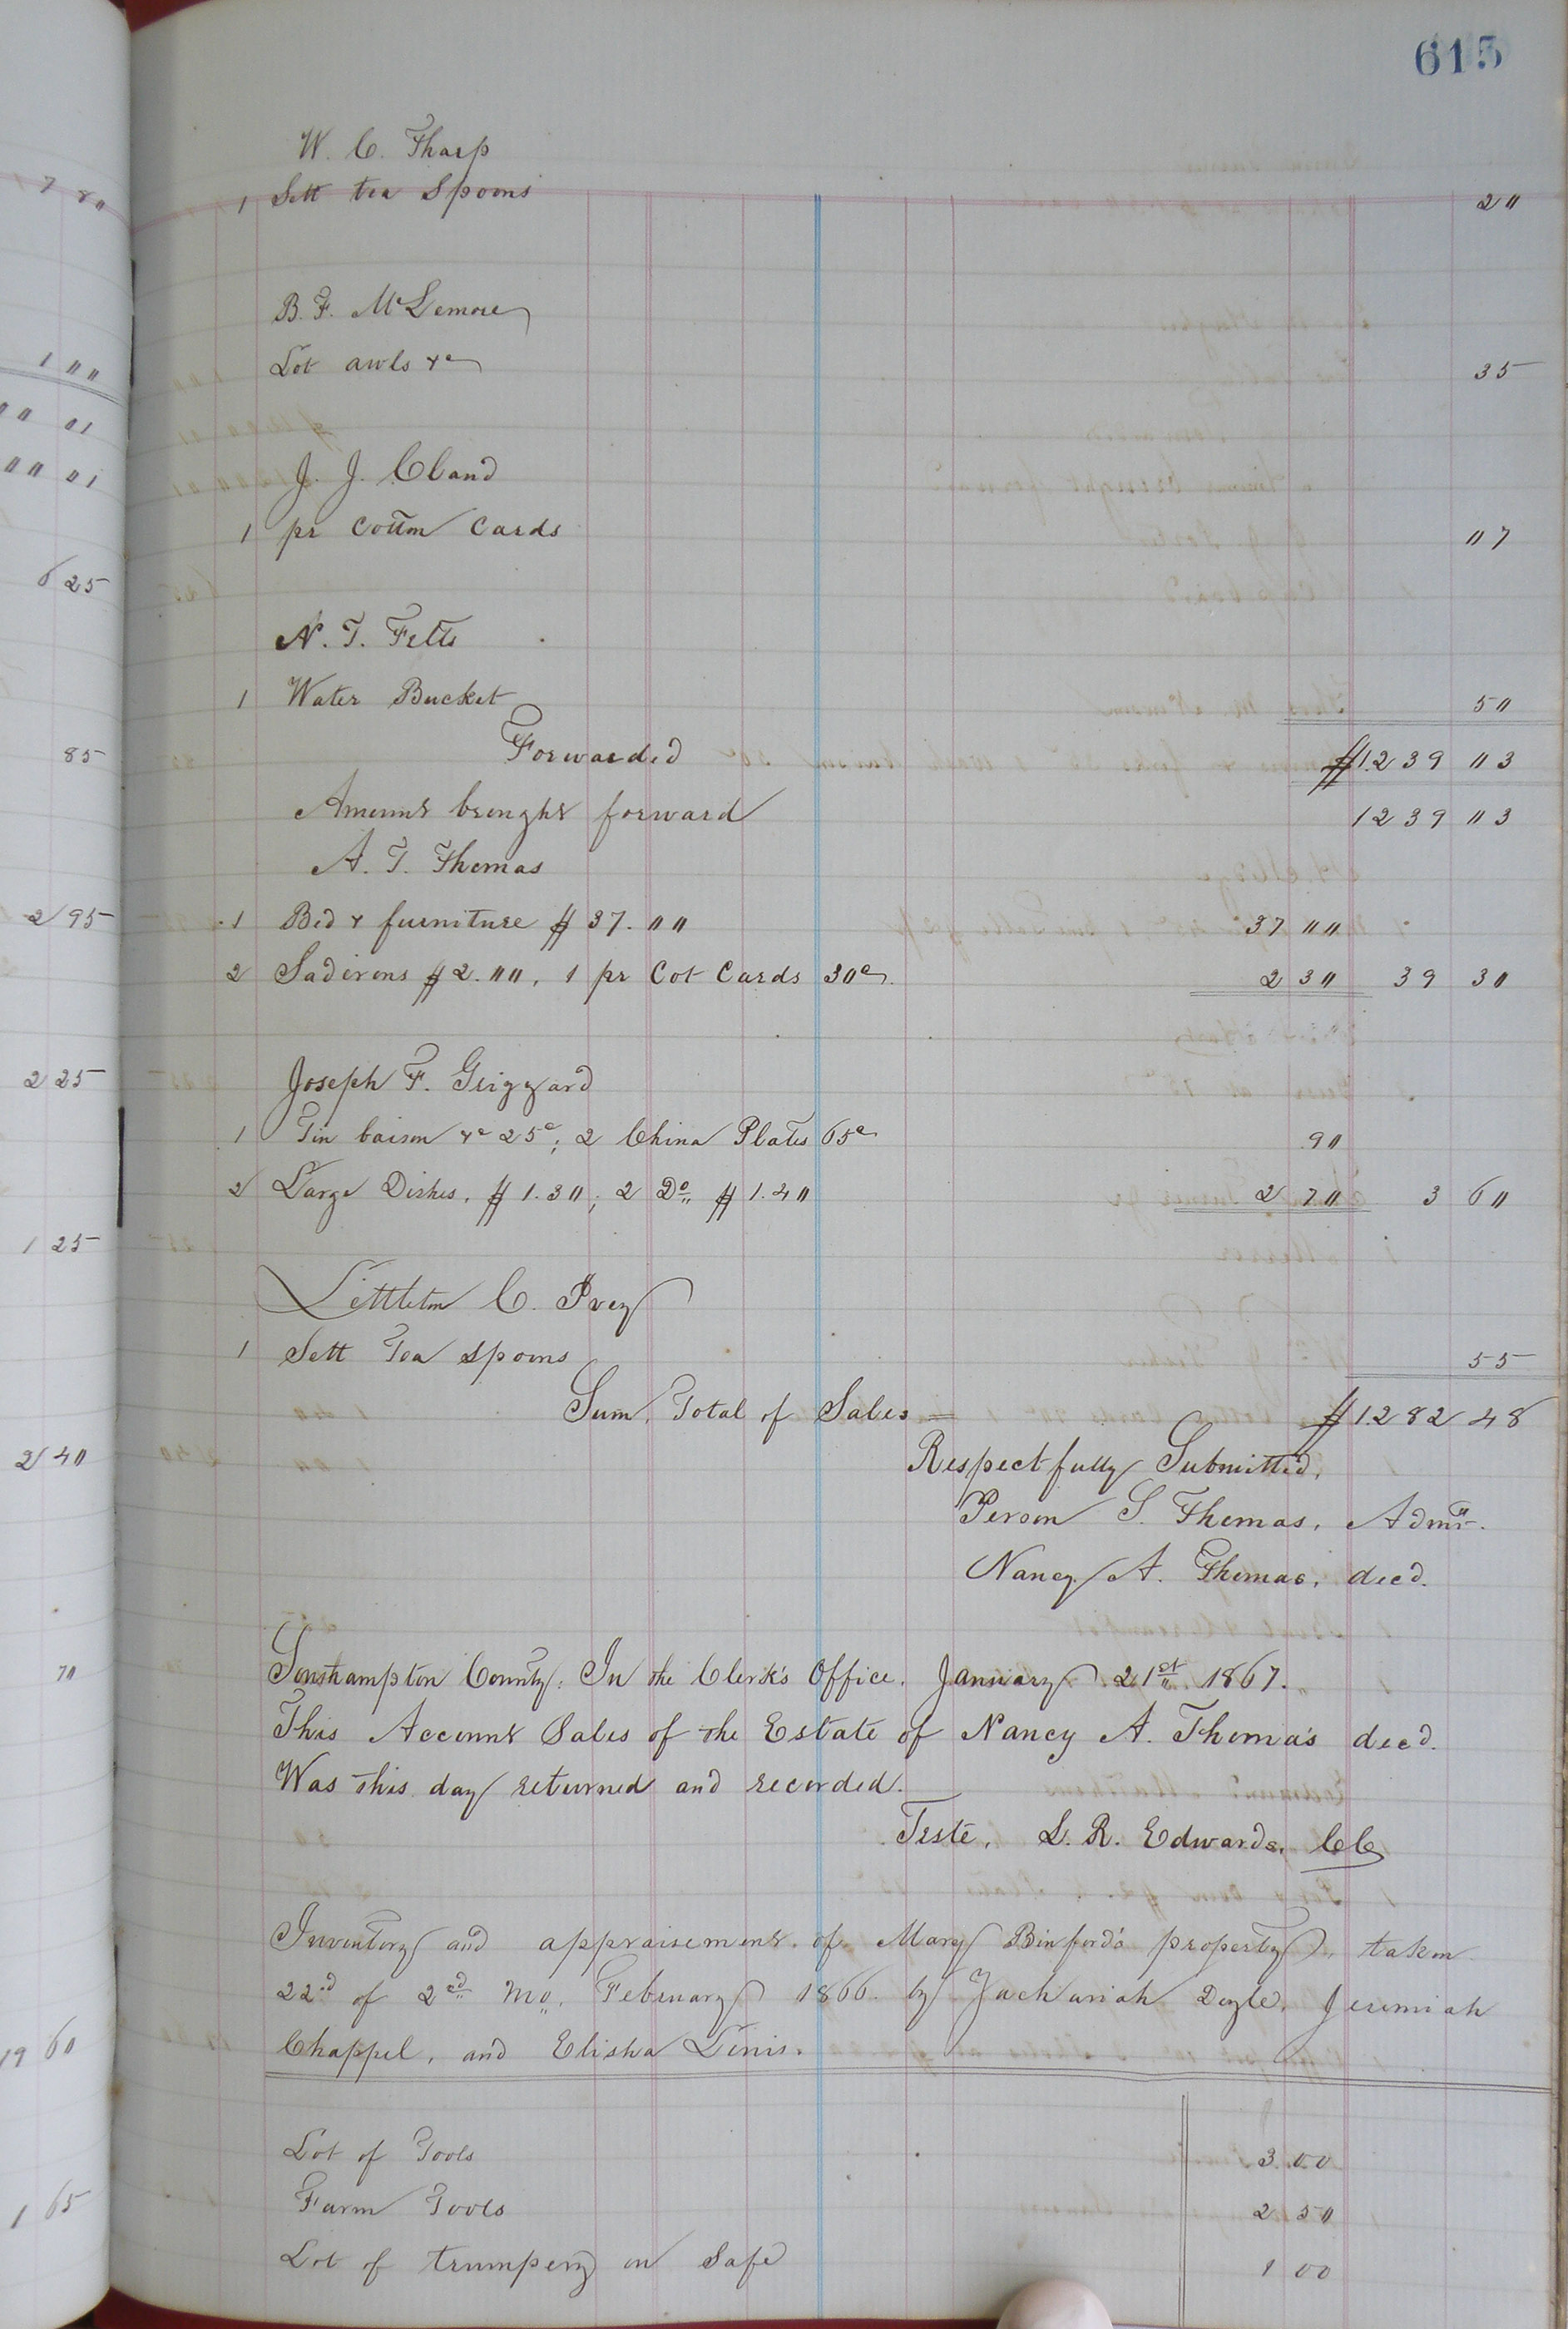 615
W. C. Tharp
1 Sett tea Spoons 20
B. F. McLemore
Lot awls &c 35
J. J. Bland
1 pr Cotton Cards 07
N. T. Felts
1 Water Bucket 50
Forwarded $1239 03
Amount brought forward 1239 03
A. T. Thomas
1 Bed & furniture $37.00 37 00
2 Sadirons $2.00, 1 pr Cot Cards 30c. 2 30 39 30
Joseph F. Grizzard
1 Tin baison &c 25c; 2 China Plates 65c 90
2 Large Dishes, $1.30; 2 Do $1.40 2 70 3 60
Littleton C. Ivey
1 Sett Tea spoons 55
Sum Total of Sales = $1282 48
Respectfully Submitted,
Person S. Thomas, Admr.
Nancy A. Thomas, decd.
Southampton County: In the Clerk's Office, January 21st 1867.
This Account Sales of the Estate of Nancy A. Thomas decd.
Was this day returned and recorded.
Teste, L. R. Edwards, CC
Inventory and appraisement of Mary Binford's property, taken
22d of 2ed Mo. February 1866 by Zachariah Doyle, Jeremiah
Chappel, and Elisha
Lot of Tools 3.00
Farm Tools 2 50
Lot of trumpery on Safe 1 00
7 80
1 00
00 01
00 01
6 25
85
2 95
2 25
1 25
2 40
70
19 60
1 65